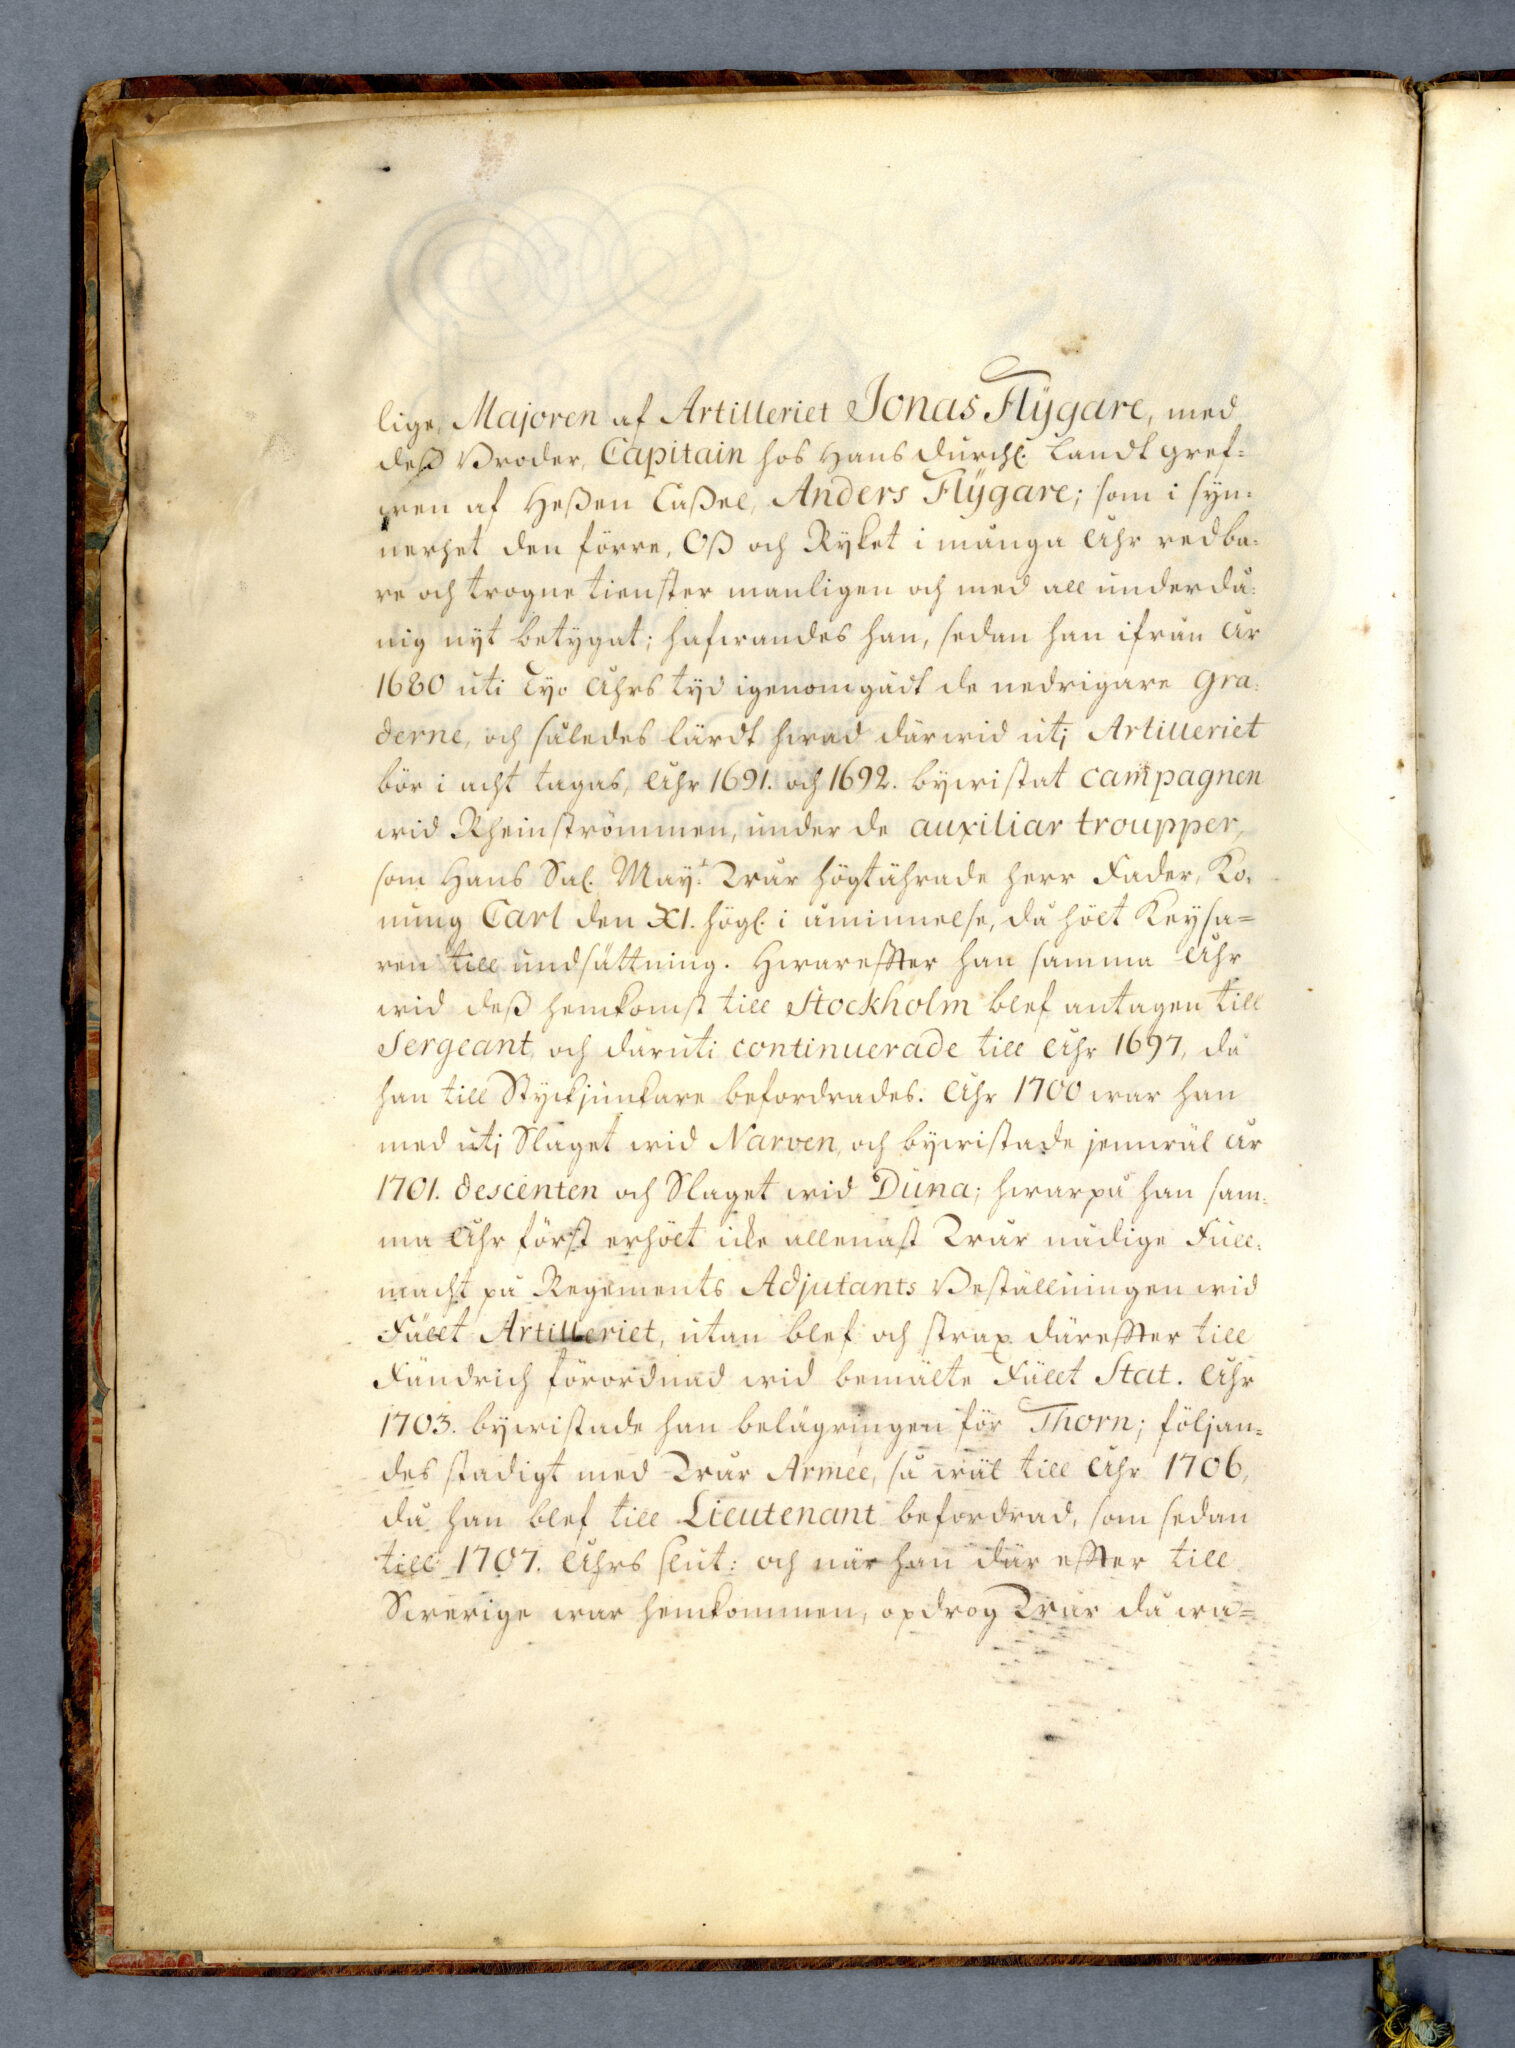 lige, Majoren af Artilleriet Jonas Flÿgare, med
deß Broder, Capitain hos Hans Durchl. Landtgref-
wen af Heßen Caßel, Anders Flÿgare; som i syn-
nerhet den förre, Oß och Ryket i många Åhr redba-
re och trogne tienster manligen och med all underdå-
nig nyt betygat; hafwandes han, sedan han ifrån År
1680 uti Tyo Åhrs tyd igenomgådt de nedrigare Gra-
derne, och således lärdt hwad därwid utj Artilleriet
bör i acht tagas, Åhr 1691. och 1692. bywistat campagnen
wid Rheinströmmen, under de auxiliar troupper,
som Hans Sal. Mayt. Wår högtährade Herr Fader, Ko-
nung Carl den XI. högl. i åminnelse, då hölt Keysa-
ren till undsättning. Hwareffter han samma Åhr
wid deß hemkomst till Stockholm blef antagen till
Sergeant, och däruti continuerade till Åhr 1697, då
han till Styckjunkare befordrades. Åhr 1700 war han
med utj Slaget wid Narven, och bywistade jemwäl År
1701. descenten och Slaget wid Düna; hwarpå han sam-
ma Åhr först erhölt icke allenast Wår nådige Full-
macht på Regements Adjutants Beställningen wid
Fält Artilleriet, utan blef och strax däreffter till
Fändrich förordnad wid bemälte Fält Stat. Åhr
1703. bywistade han belägringen för Thorn; följan-
des stadigt med Wår Armée, så wäl till Åhr 1706,
då han blef till Lieutenant befordrad, som sedan
till 1707. Åhrs slut: och när han där effter till
Swerige war hemkommen, opdrog Wår då wa-